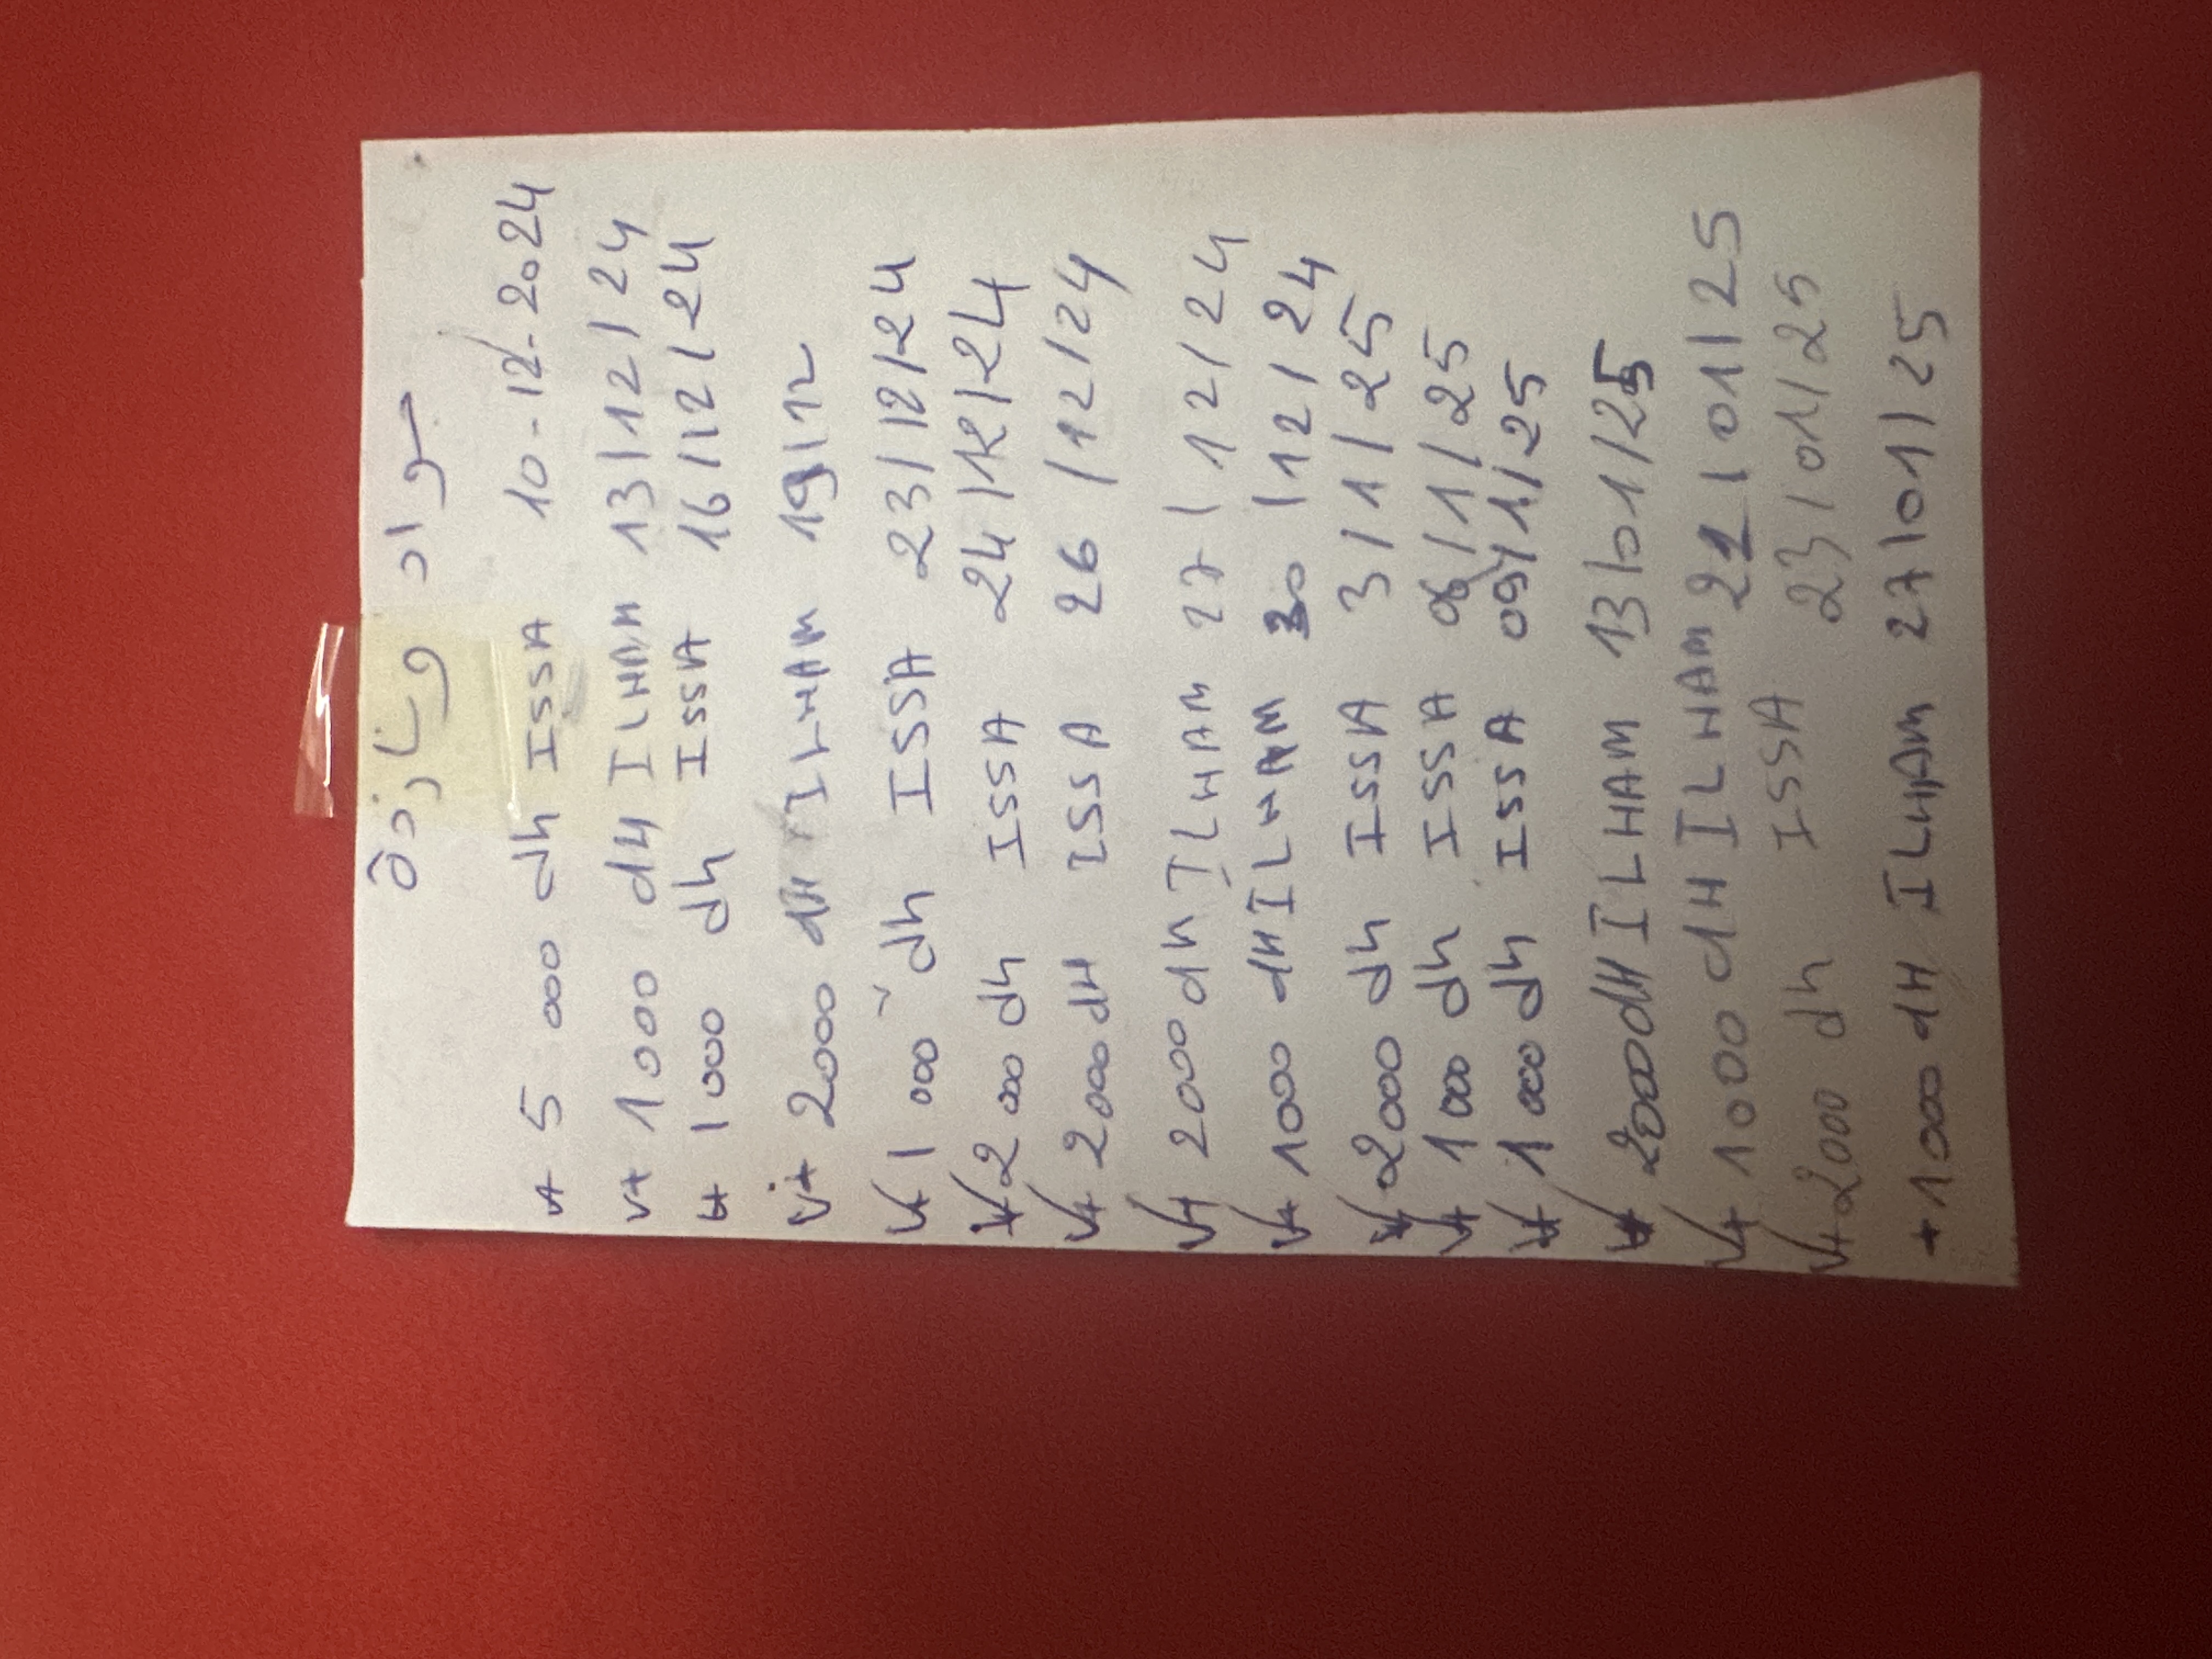 جواد ونازدة
+ 5 000 dh ISSA 10-12-2024
+ 1000 dH ILHAM 13/12/24
+ 1000 dh ISSA 16/12/24
+ 2000 dH ILHAM 19/12
+ 1 000 dh ISSA 23/12/24
+ 2000 dh ISSA 24/12/24
+ 2000 dH ISSA 26/12/24
+ 2000 dh ILHAM 27/12/24
+ 1000 dH ILHAM 30/12/24
+ 2000 dh ISSA 3/1/25
+ 1000 dh ISSA 06/1/25
+ 1000 dh ISSA 09/1/25
+ 2000 dH ILHAM 13/01/25
+ 1000 dH ILHAM 21/01/25
+ 2000 dh ISSA 23/01/25
+ 1000 dH ILHAM 27/01/25